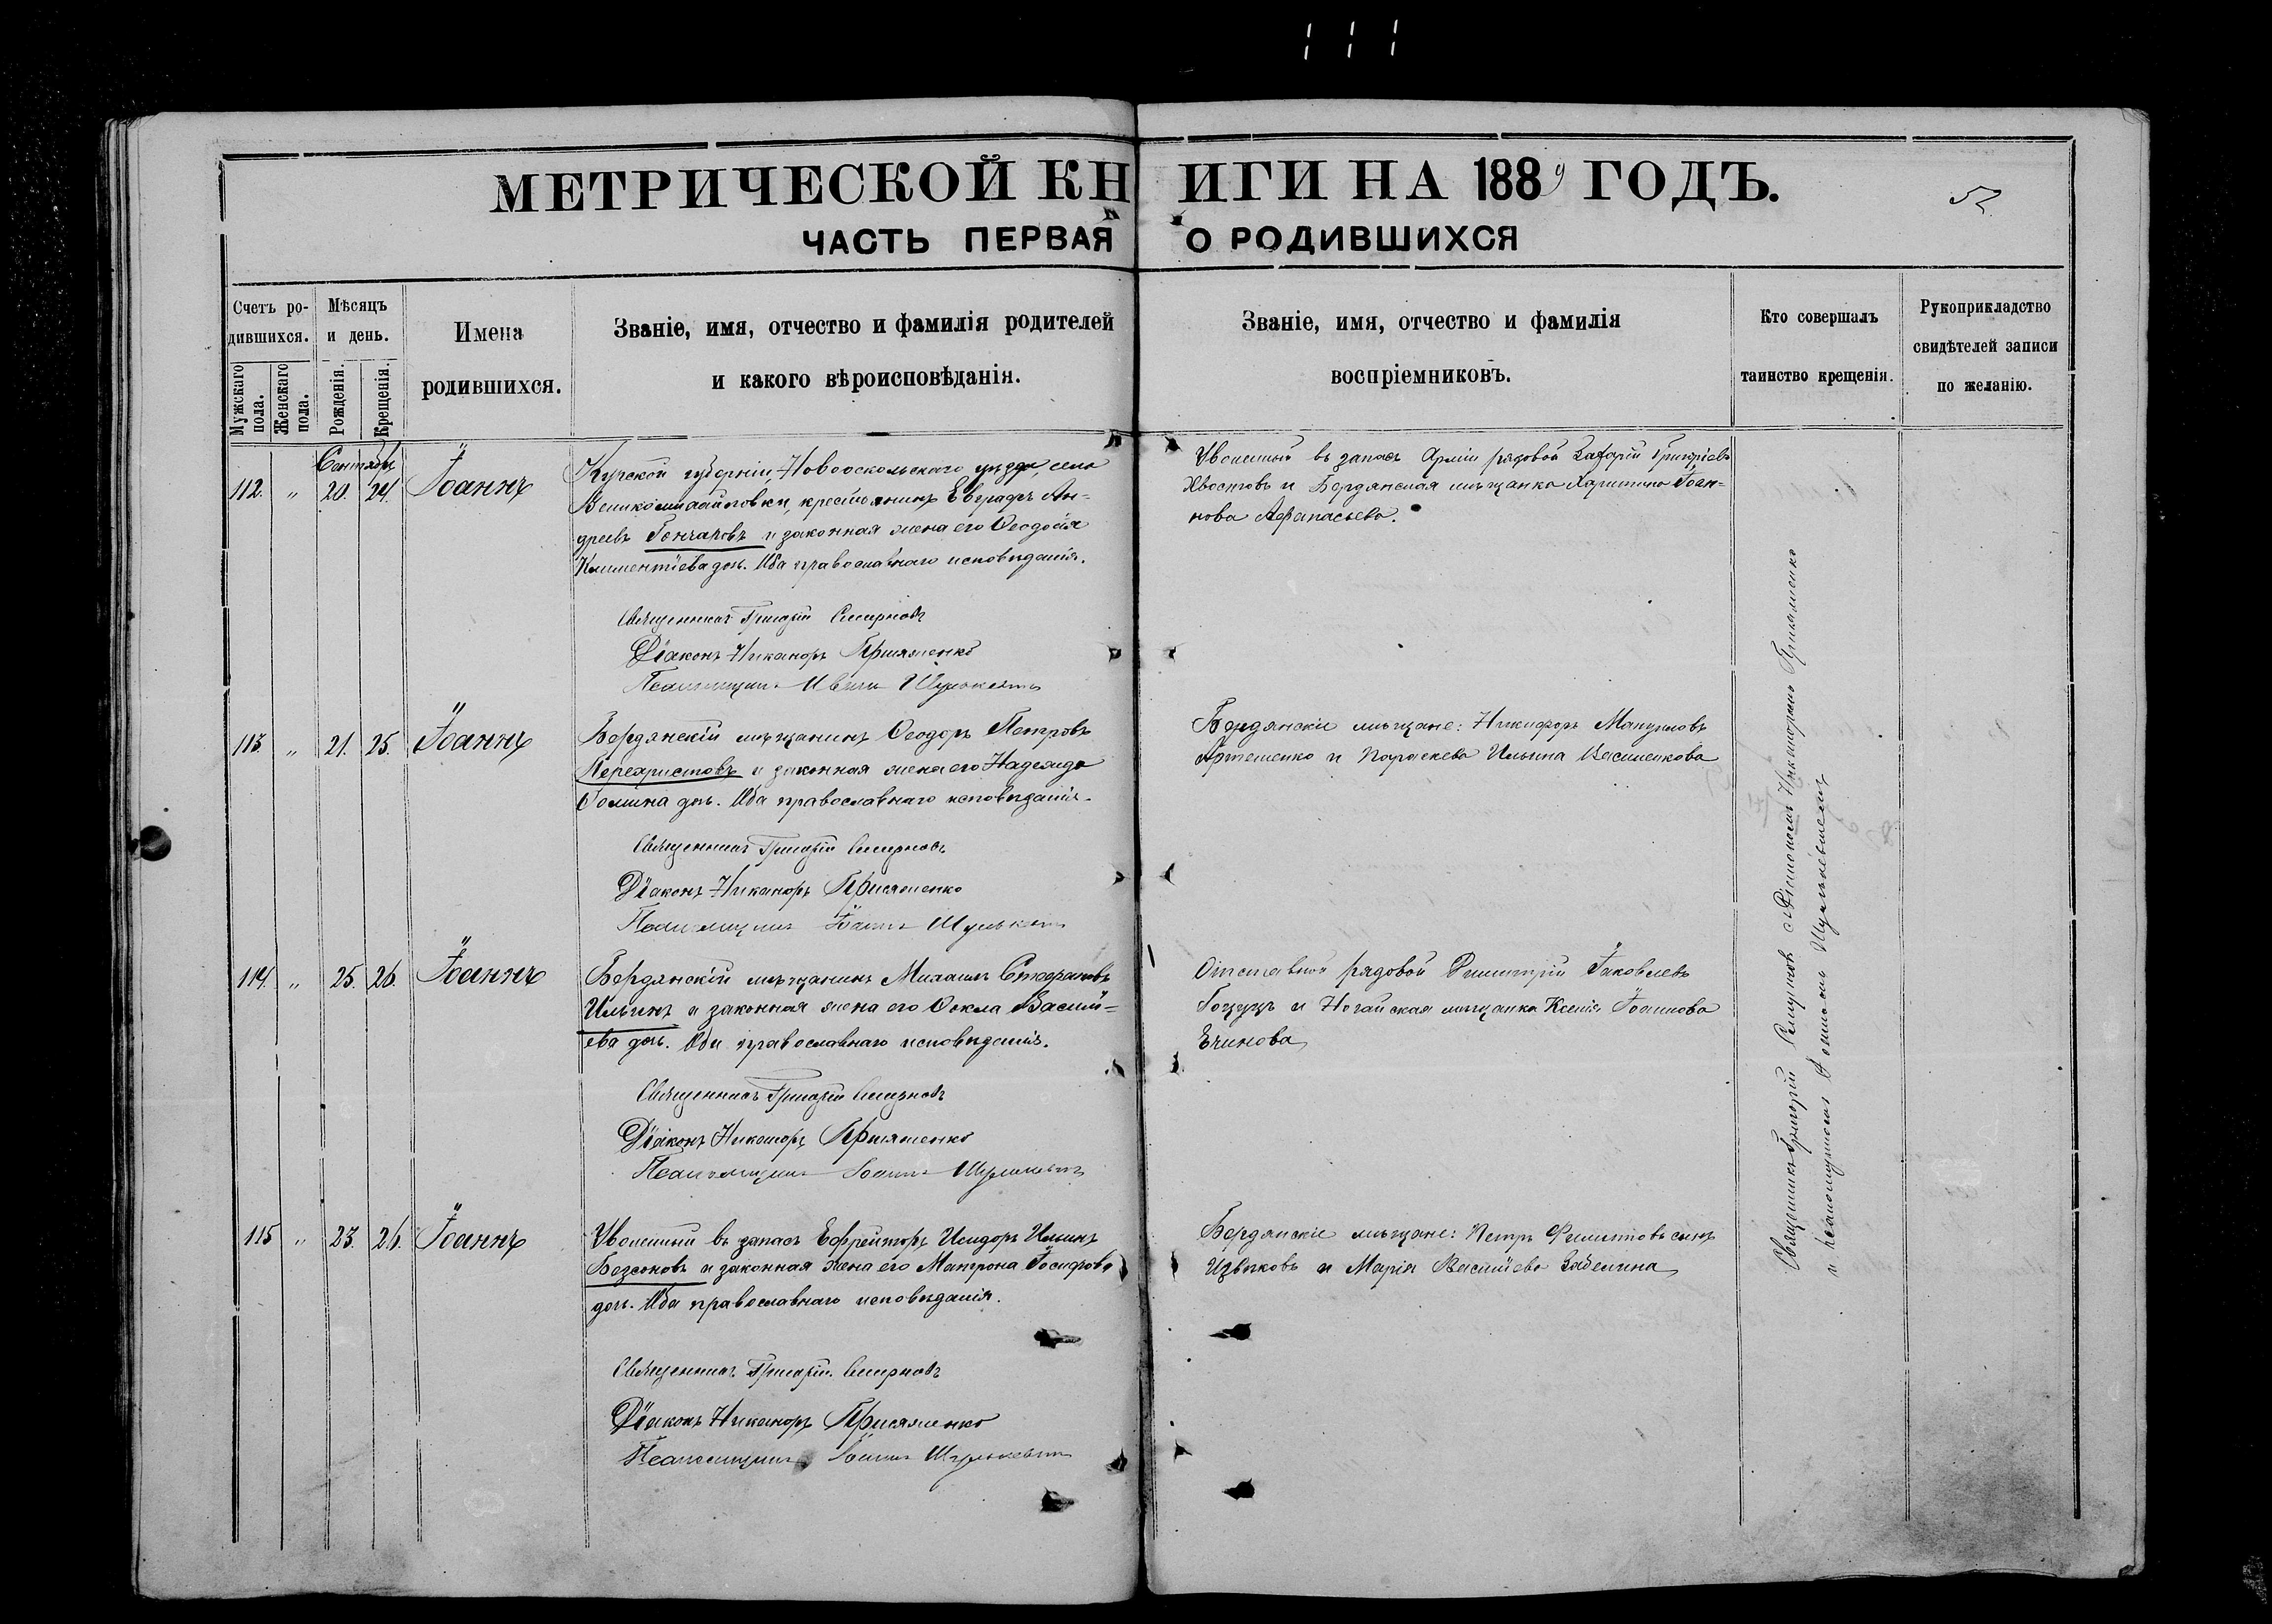 МЕТРИЧЕСКОЙ КНИГИ НА 1889 ГОДЪ.
52
ЧАСТЬ ПЕРВАЯ О РОДИВШИХСЯ
Счетъ ро-
дившихся.
Мужскаго пола.
Женскаго пола.
Мѣсяцъ
и день.
Рожденія.
Крещенія.
Имена
родившихся.
Званіе, имя, отчество и фамилія родителей
и какого вѣроисповѣданія.
Званіе, имя, отчество и фамилія
воспріемниковъ.
Кто совершалъ
таинство крещенія.
Рукоприкладство
свидѣтелей записи
по желанію.
Сентябрь
112. " 20. 24. Іоаннъ
Курской губерніи, Новооскольскаго уѣзда, села
Великомихайловки, крестьянинъ Евграфъ Ан-
дреевъ Гончаровъ и законная жена его Ѳеодосія
Климентіева дочь. Оба православнаго исповѣданія.
Уволенный въ запасъ Арміи рядовой Захарій Григорьевъ
Хвостовъ и Бердянская мѣщанка Харитина Іоан-
нова Афанасьева.
Священникъ Григорій Смирновъ
Діаконъ Никаноръ Присяженко
Псаломщикъ
113 " 21. 25. Іоаннъ
Бердянскій мѣщанинъ Ѳеодоръ Петровъ
Перехристовъ и законная жена его Надежда
Ѳомина дочь. Оба православнаго исповѣданія.
Бердянскіе мѣщане: Никифоръ
Артеменко и Параскева Ильина
Священникъ Григорій Смирновъ
Діаконъ Никаноръ Присяженко
Псаломщикъ Іоаннъ
114. " 25. 26. Іоаннъ
Бердянскій мѣщанинъ Михаилъ Стефановъ
Ильинъ и законная жена его Ѳекла Василі-
ева дочь. Оба православнаго исповѣданія.
Отставной рядовой Димитрій Іаковлевъ
и Ногайская мѣщанка Ксенія Іоаннова
Ечинова
Священникъ Григорій Смирновъ
Діаконъ Никаноръ Присяженко
Псаломщикъ Іоаннъ
115 " 23. 26. Іоаннъ
Уволенный въ запасъ Ефрейторъ Исидоръ Ильинъ
Безсоновъ и законная жена его Матрона Іосифова
дочь. Оба православнаго исповѣданія.
Бердянскіе мѣщане: Петръ сынъ
Извѣковъ и Марія Василіева Забелина
Священникъ Григорій Смирновъ
Діаконъ Никаноръ Присяженко
Псаломщикъ Іоаннъ
Священникъ Григорій Смирновъ съ Діакономъ Никаноромъ Присяженко
и псаломщикомъ